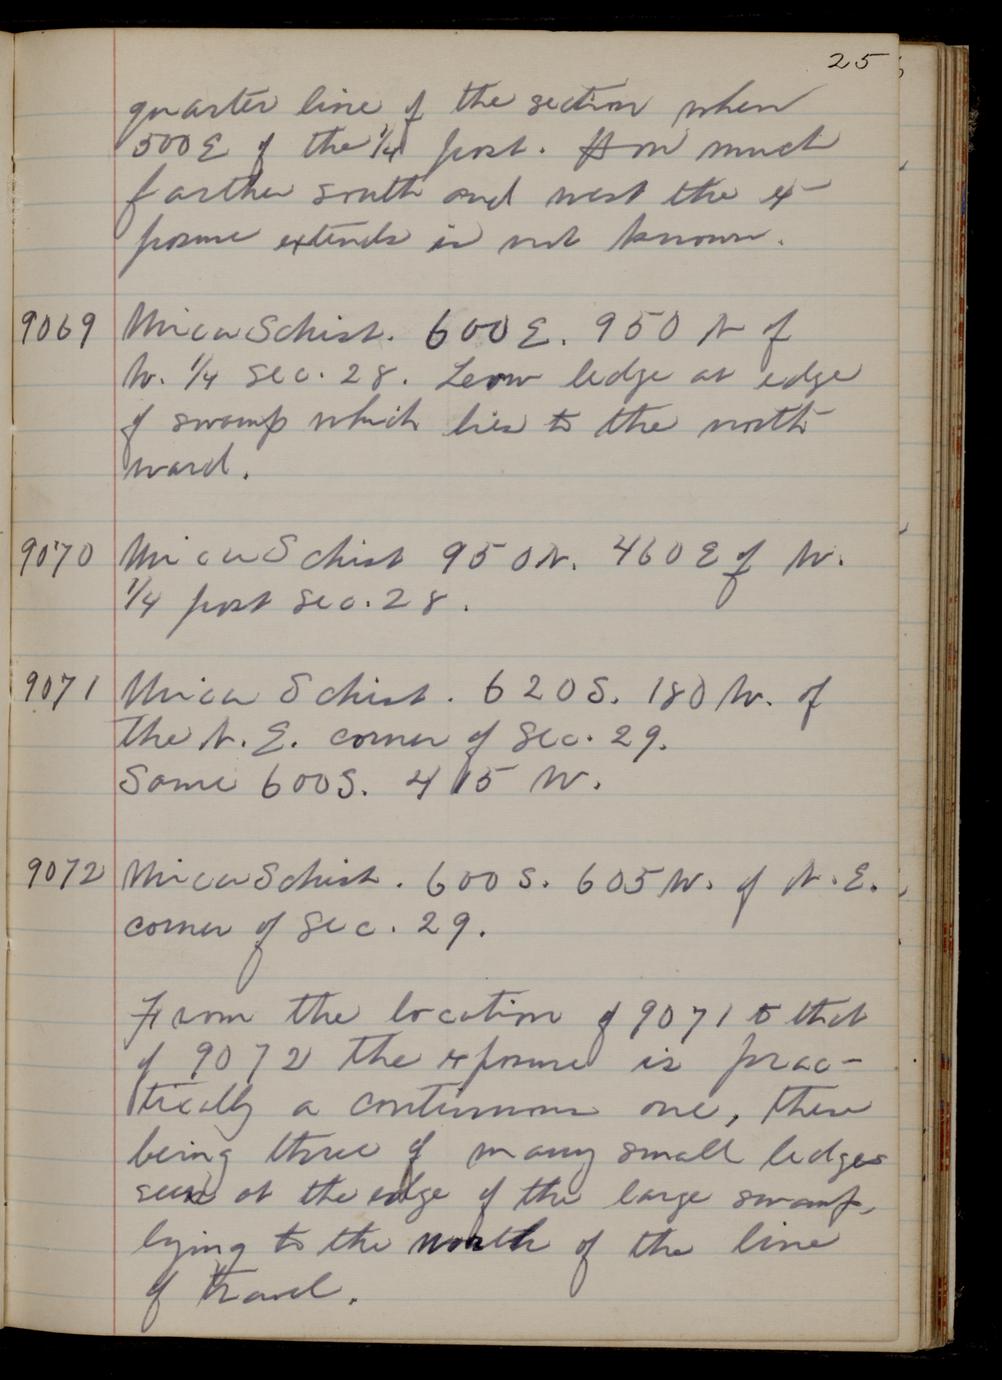 25
quarter line of the section when
500 E of the 1/4 post. How much
farther south and west the ex-
posure extends is not known.
9069 Mica Schist. 600 E. 950 N of
W. 1/4 Sec. 28. Low ledge at edge
of swamp which lies to the north
ward.
9070 Mica Schist 950 N. 460 E of W.
1/4 post Sec. 28.
9071 Mica Schist. 620 S. 180 W. of
the N. E. corner of Sec. 29.
Same 600 S. 415 W.
9072 Mica Schist. 600 S. 605 W. of N. E.
corner of Sec. 29.
From the location of 9071 to that
of 9072 the exposure is prac-
tically a continuous one, there
being three of many small ledges
seen at the edge of the large swamp,
lying to the north of the line
of travel.